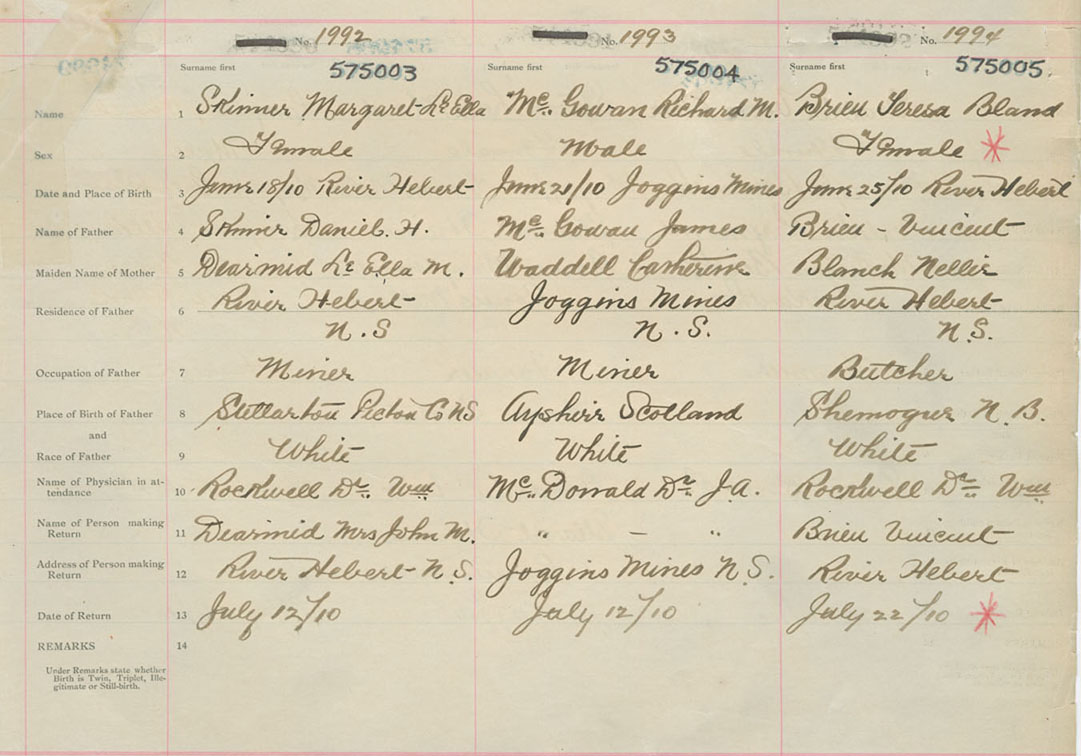 No. 1992 No. 1993 No. 1994
Surname first 575003 Surname first 575004 Surname first 575005
Name 1 Skinner Margaret Le Ella Mc. Gowan Richard M. Brieu Teresa Bland
Sex 2 Female Male Female *
Date and Place of Birth 3 June 18/10 River Hebert June 21/10 Joggins Mines June 25/10 River Hebert
Name of Father 4 Skinner Daniel. H. Mc. Gowan James Brieu - Vincent
Maiden Name of Mother 5 Dearmid Le Ella M. Waddell Catherine Blanch Nellie
Residence of Father 6 River Hebert Joggins Mines River Hebert
N.S N.S. N.S.
Occupation of Father 7 Miner Miner Butcher
Place of Birth of Father 8 Stellarton Pictou Co NS Ayshire Scotland Shemogue N.B.
and
Race of Father 9 White White White
Name of Physician in at-
tendance 10 Rockwell Dr. Wm Mc. Donald Dr. J.A. Rockwell Dr. Wm
Name of Person making
Return 11 Dearmid Mrs John M. " — " Brieu Vincent
Address of Person making
Return 12 River Hebert N.S. Joggins Mines N.S. River Hebert
Date of Return 13 July 12/10 July 12/10 July 22/10 *
REMARKS 14
Under Remarks state whether
Birth is Twin, Triplet, Ille-
gitimate or Still-birth.